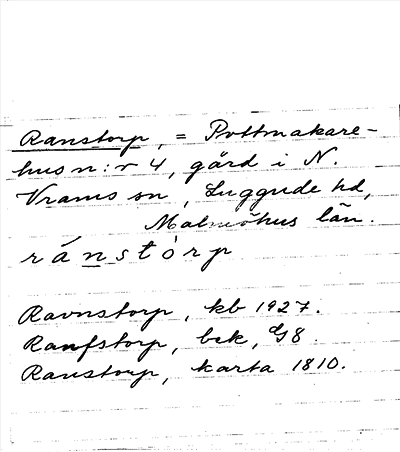 Ranstorp, = Pottmakare-
hus n:r 4, gård i N.
Vrams sn, Luggude hd,
Malmöhus län.
ránstòrp
Ravnstorp, kb 1927.
Ranfstorp, bek, G8.
Raustorp, karta 1810.